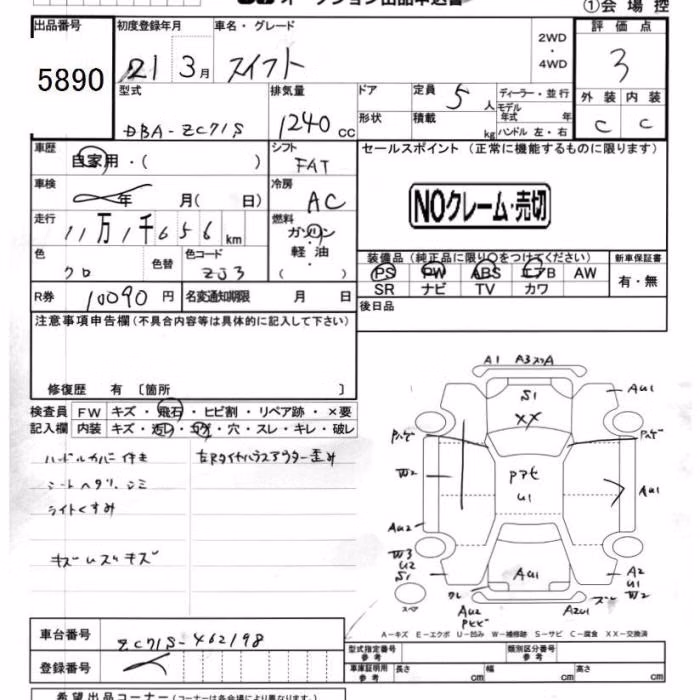 ①会場控
出品番号 初度登録年月 車名・グレード 評価点
5890 R1 3月 スイフト 2WD ・ 4WD 3
型式 排気量 ドア 定員 5人 ディーラー・並行 外装 内装
DBA-ZC71S 1240 CC 形状 積載 kg モデル年式 年 ハンドル 左・右 C C
車歴 自家用・( ) シフト FAT セールスポイント(正常に機能するものに限ります)
車検 年 月( 日) 冷房 AC NOクレーム・売切
走行 11万1千656km 燃料 ガソリン・軽油・( )
色 クロ 色替 色コード ZJ3 装備品(純正品に限り○をつけてください) 新車保証書
PS PW ABS エアB AW 有・無
R券 10090円 名変通知期限 月 日 SR ナビ TV カワ
注意事項申告欄(不具合内容等は具体的に記入して下さい) 後日品
修復歴 有 〔箇所 〕
検査員 FW キズ・飛石・ヒビ割・リペア跡・×要
記入欄 内装 キズ・汚レ・コゲ・穴・スレ・キレ・破レ
ハンドルカバー付き
シートヘタリ シミ
ライトくすみ
A1
S1
XX
AU1
W2
U1
AU1
AU2
W3
U2
S1
AU1
A2
U1
W2
スペア
AU2
A2U1
A-キズ E-エクボ U-凹み W-補修跡 S-サビ C-腐食 XX-交換済
車台番号 ZC71S-462198
登録番号
型式指定番号 参考 類別区分番号 参考
車庫証明用 参考 長さ cm 幅 cm 高さ cm
希望出品コーナー(コーナーは各会場により異なります)